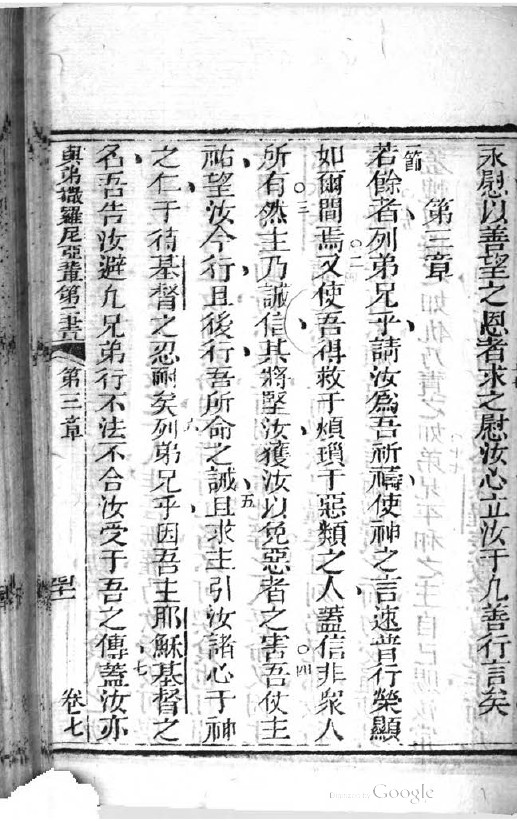 永慰以善望之恩者求之慰汝心立汝于凡善行言矣
第三章
節若餘者列弟兄乎請汝為吾祈禱使神之言速普行榮顯
如爾間焉○二又使吾得救于煩瑣于惡類之人蓋信非衆人
所有○三然主乃誠信其將堅汝獲汝以免惡者之害○四吾仗主
祐望汝今行且後行吾所命之誡五且求主引汝諸心于神
之仁于待基督之忍耐矣六列弟兄乎因吾主耶穌基督之
名吾告汝避凡兄弟行不法不合汝受于吾之傳七蓋汝亦
與弟撒羅尼亞輩第二書 第三章 卷七
Google